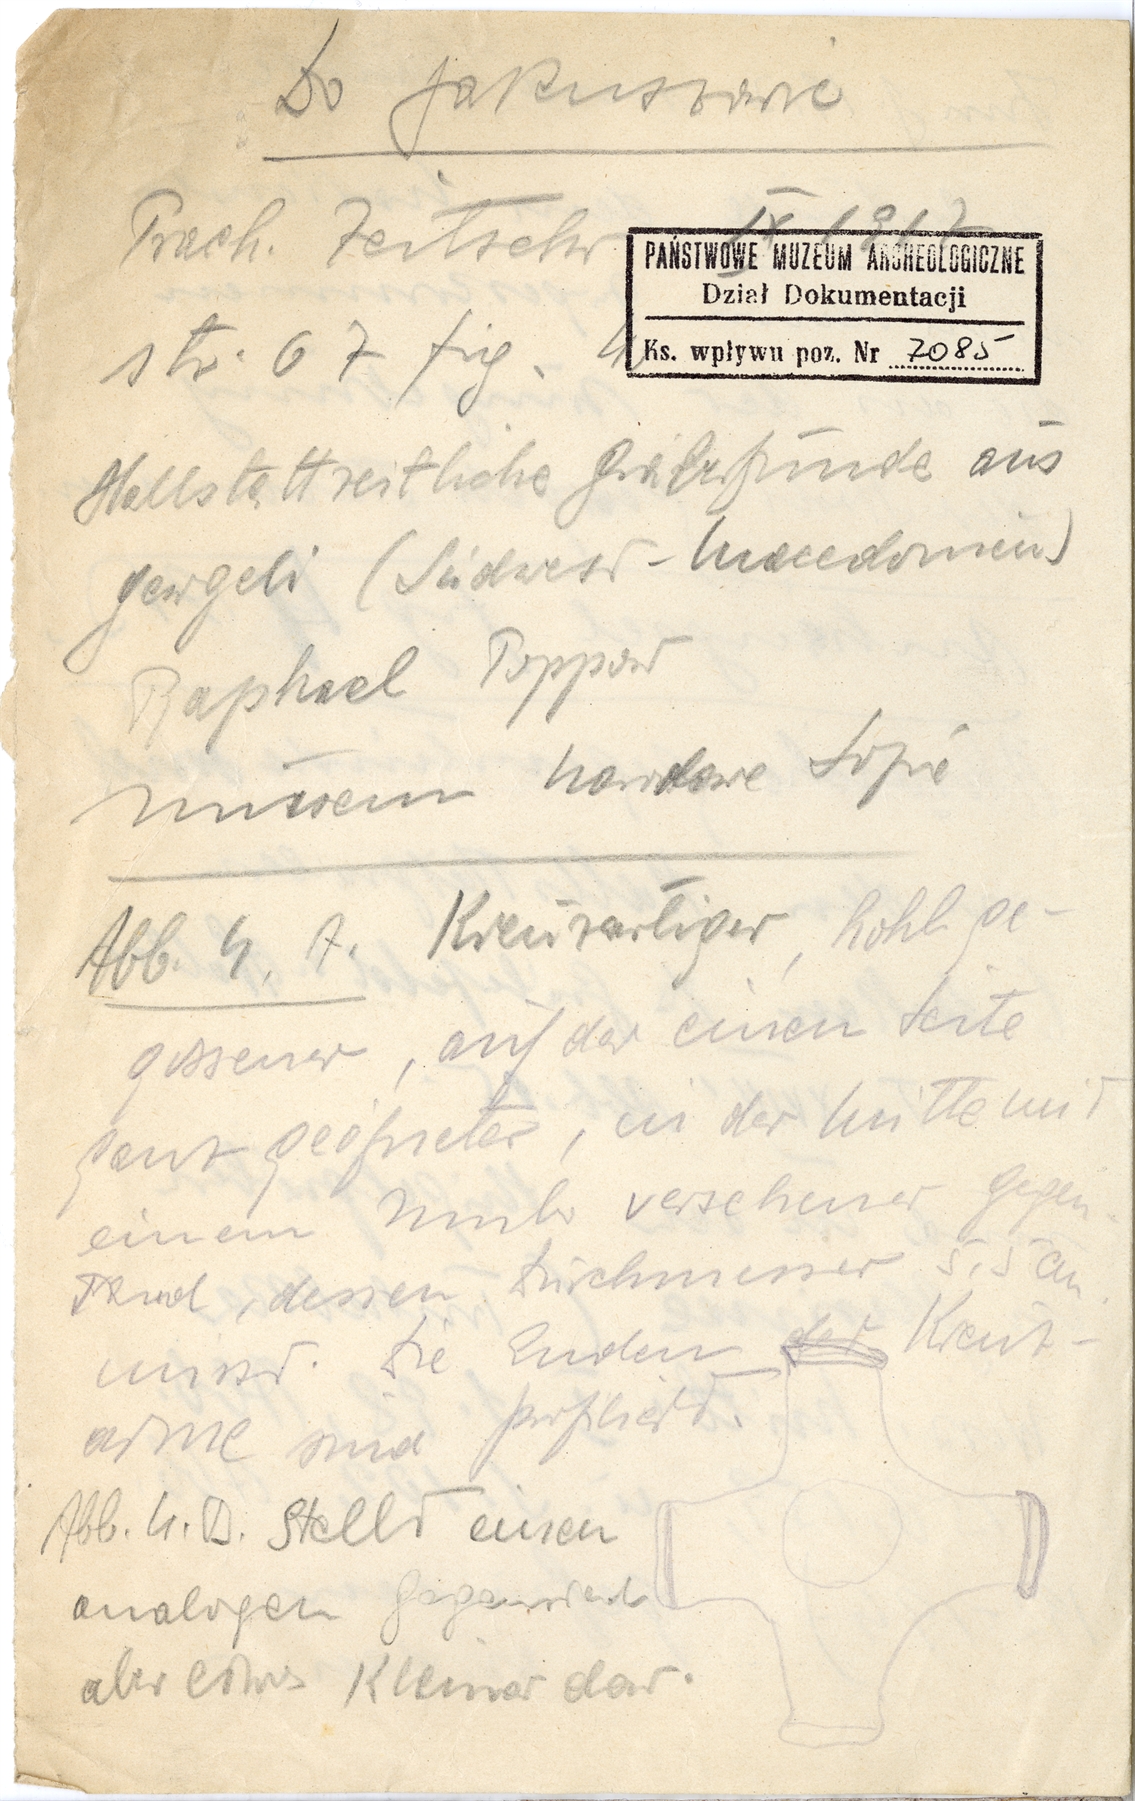 Do Jakuszowic
Praeh. Zeitschr IX 1917
PAŃSTWOWE MUZEUM ARCHEOLOGICZNE
Dział Dokumentacji
Ks. wpływu poz. Nr 7085
str. 67 fig. 4
Hallstattzeitliche Gräberfunde aus
Gewgeli (Südwest-Macedonien)
Raphael Poppow
Muzeum Narodowe Sofie
Abb. 4. A. Kreuzartiger, hohl ge-
gossener, auf der einen Seite
ganz geöfneter, in der Mitte mit
einem versehener Gegen-
stand, dessen Durchmesser 5,5 cm.
misst. Die Enden der Kreuz-
arme sind profiliert.
Abb. 4. B. Stellt einen
analogen Gegenstand
aber etwas Kleiner dar.